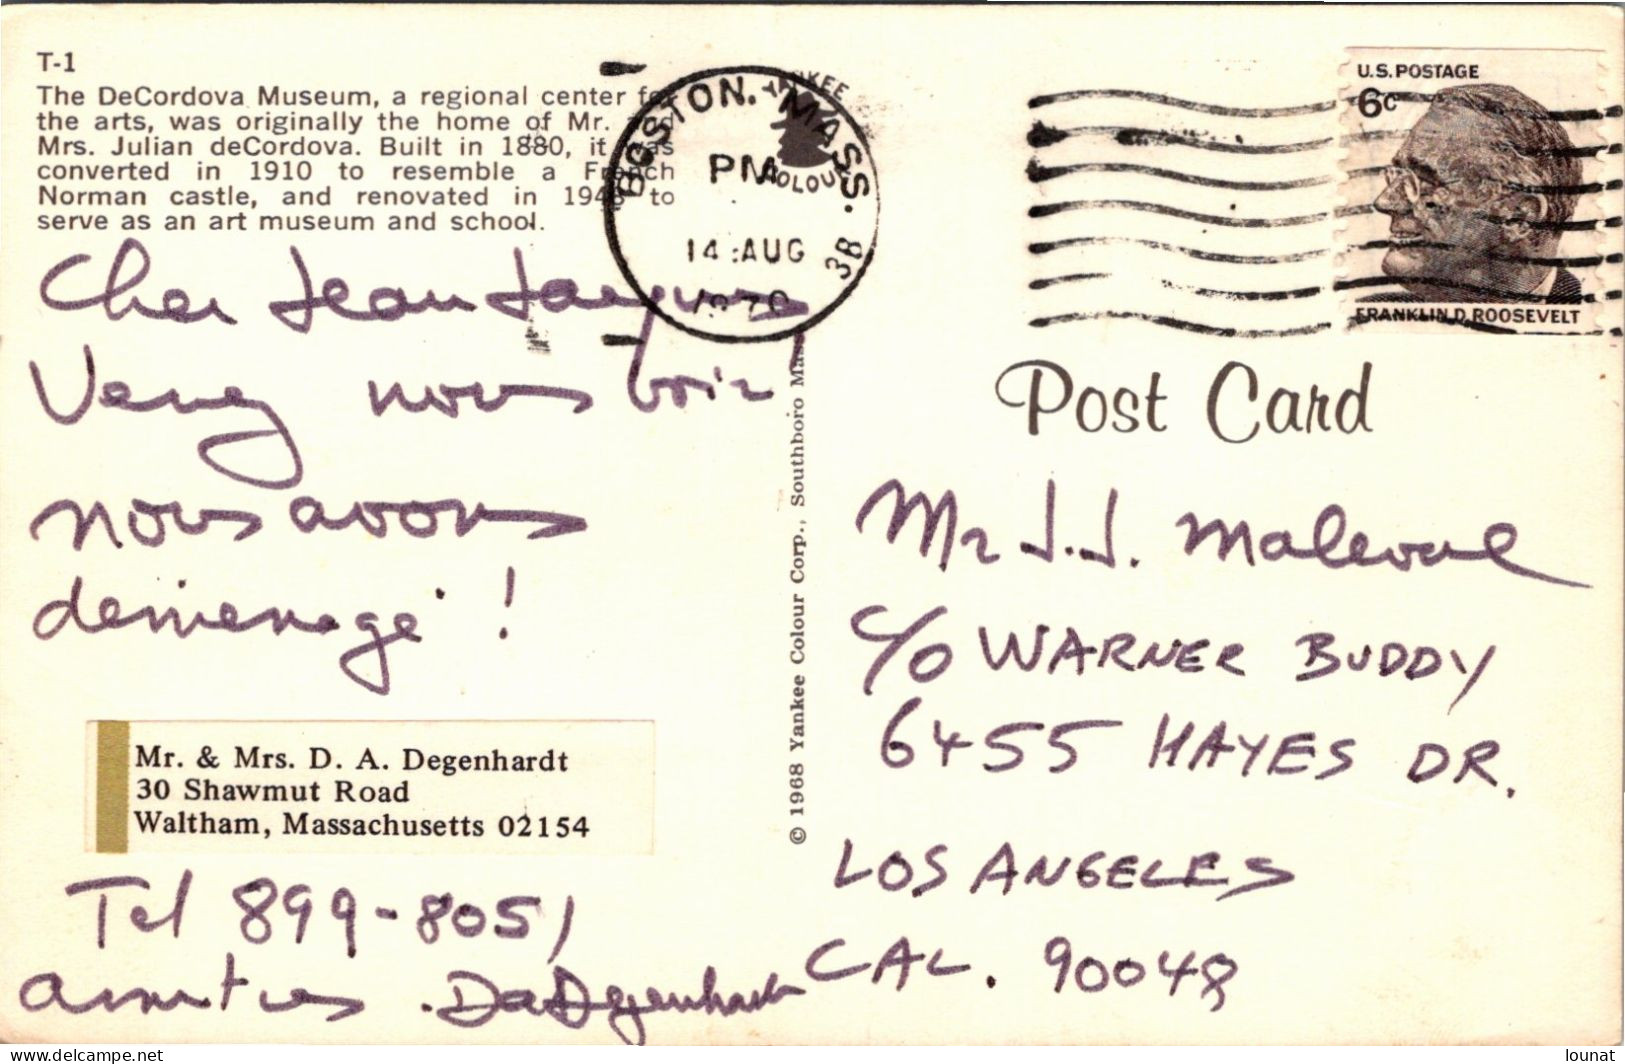 T-1
The DeCordova Museum, a regional center for
the arts, was originally the home of Mr. and
Mrs. Julian deCordova. Built in 1880, it was
converted in 1910 to resemble a French
Norman castle, and renovated in 1948 to
serve as an art museum and school.
BOSTON, MASS.
PM
14 AUG
1970
3B
U.S. POSTAGE
6c
FRANKLIN D. ROOSEVELT
Cher Jean Jacques
Venez nous voir,
nous avons
demenagé !
Mr. & Mrs. D. A. Degenhardt
30 Shawmut Road
Waltham, Massachusetts 02154
Tel 899-8051
amities . DaDegenhardt
© 1968 Yankee Colour Corp., Southboro Mass.
Post Card
Mr J.J. Maleval
c/o WARNER BUDDY
6455 HAYES DR.
LOS ANGELES
CAL. 90048
delcampe.net
lounat